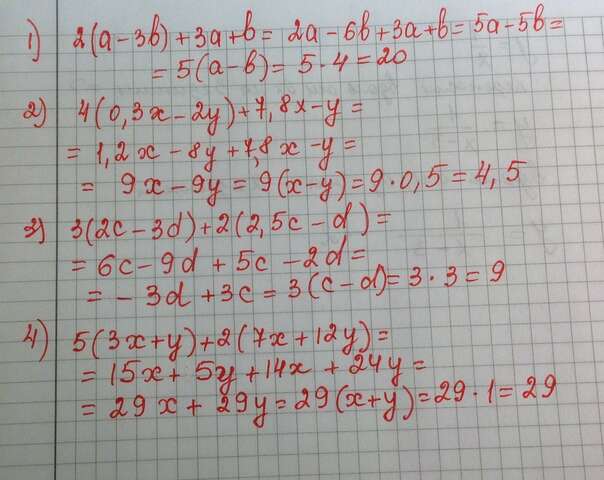 1) 2(a-3b)+3a+b= 2a-6b+3a+b=5a-5b=
=5(a-b)=5·4=20
2) 4(0,3x-2y)+7,8x-y=
=1,2x-8y+7,8x-y=
= 9x-9y=9(x-y)=9·0,5=4,5
3) 3(2c-3d)+2(2,5c-d)=
=6c-9d+5c-2d=
=-3d+3c=3(c-d)=3·3=9
4) 5(3x+y)+2(7x+12y)=
=15x+5y+14x+24y=
=29x+29y=29(x+y)=29·1=29